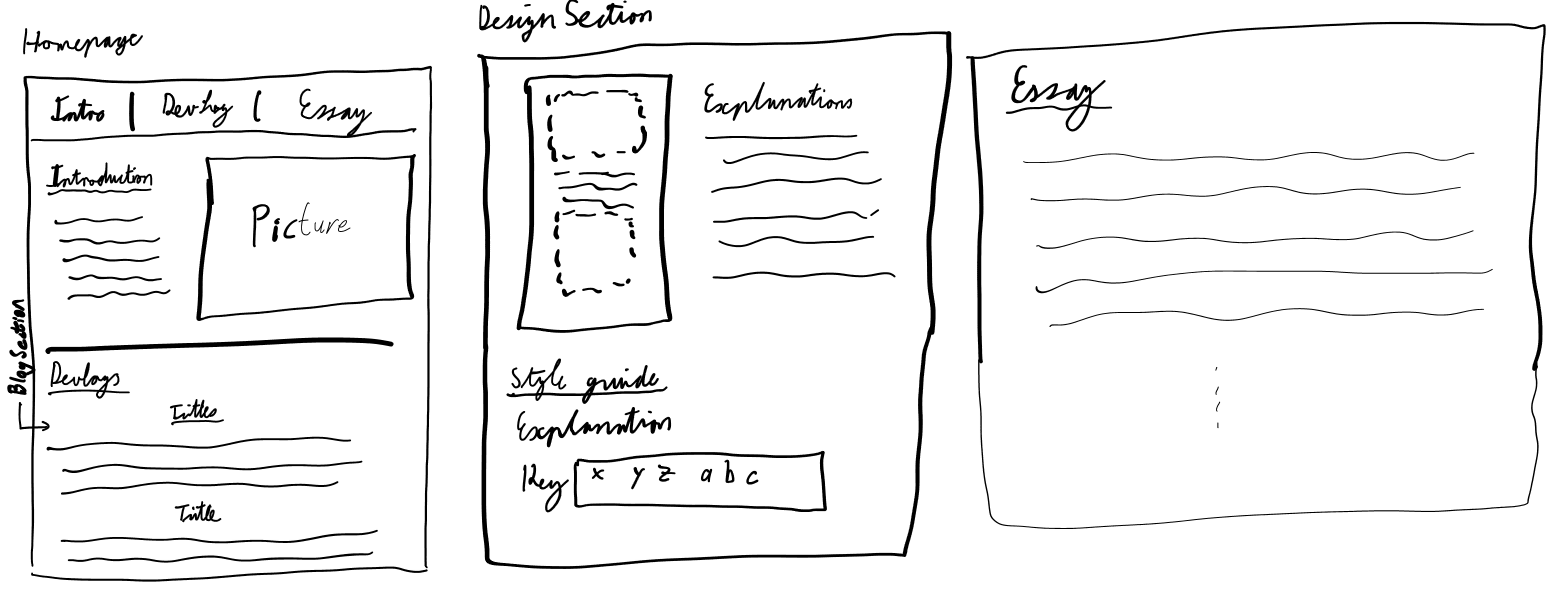 Homepage
Intro | DevLog | Essay
Introduction
Picture
Blog Section
Devlogs
Titles
Title
Design Section
Explanations
Style guide
Explanation
Key x y z a b c
Essay